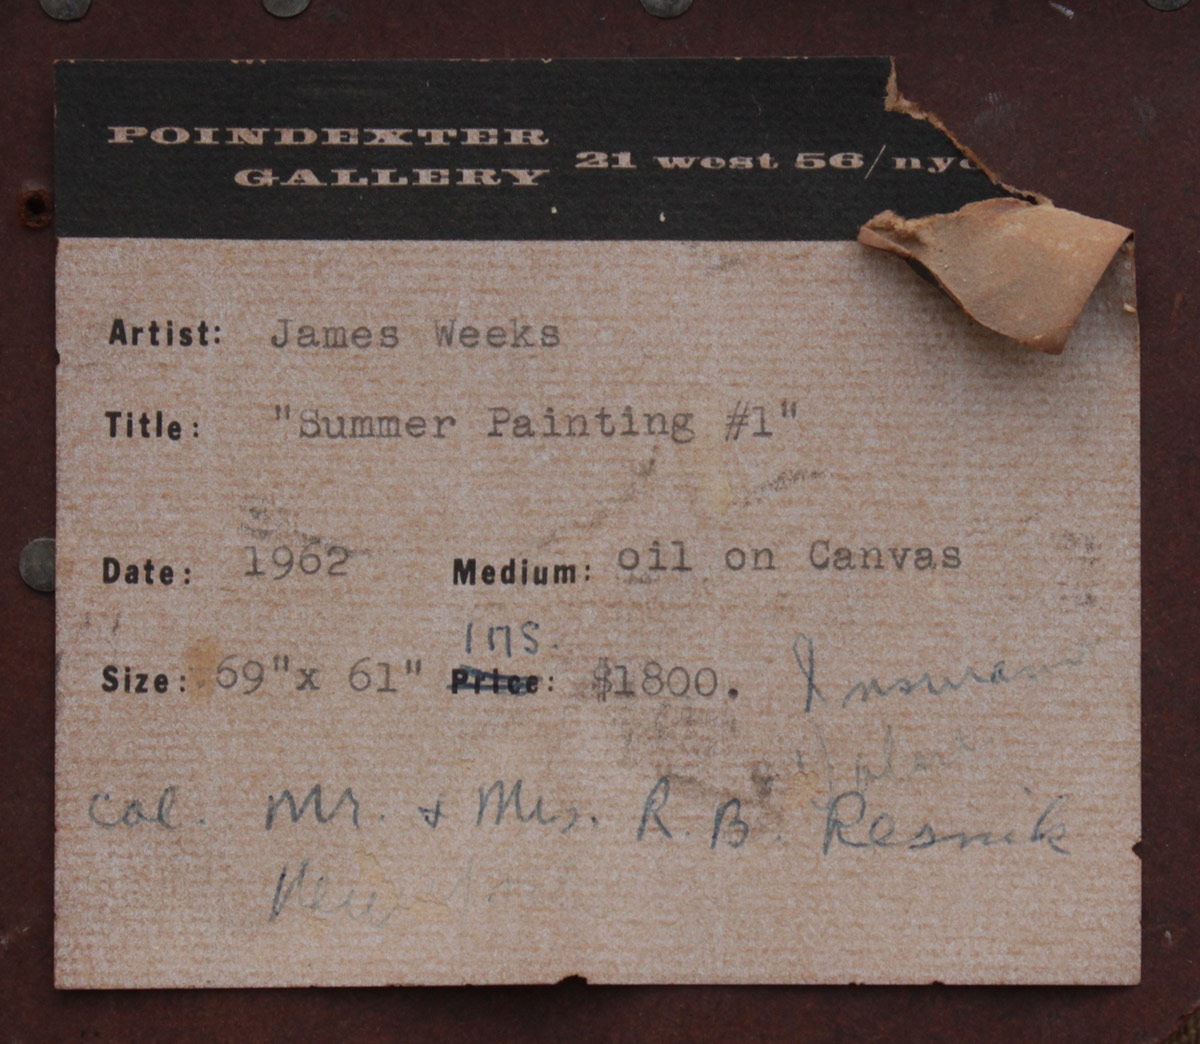 POINDEXTER
GALLERY 21 west 56/nyc
Artist: James Weeks
Title: "Summer Painting #1"
Date: 1962 Medium: oil on Canvas
ins.
Size: 69"x 61" Price: $1800. Insurance
Value
Col. Mr. & Mrs. R. B. Resnik
New